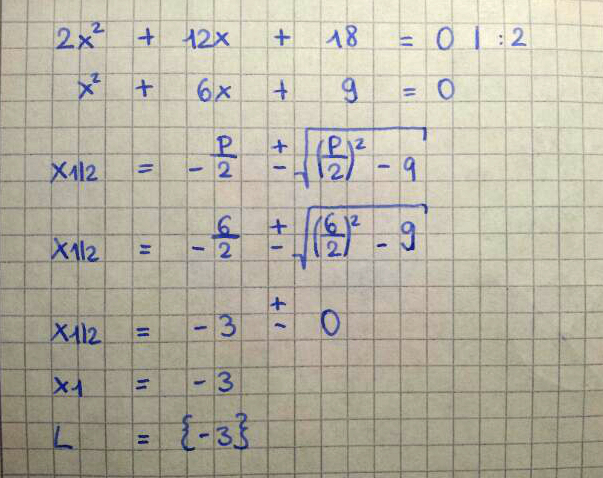 2x² + 12x + 18 = 0 | : 2
x² + 6x + 9 = 0
x1/2 = - P/2 ± √((P/2)² - q)
x1/2 = - 6/2 ± √((6/2)² - 9)
x1/2 = - 3 ± 0
x1 = - 3
L = {-3}